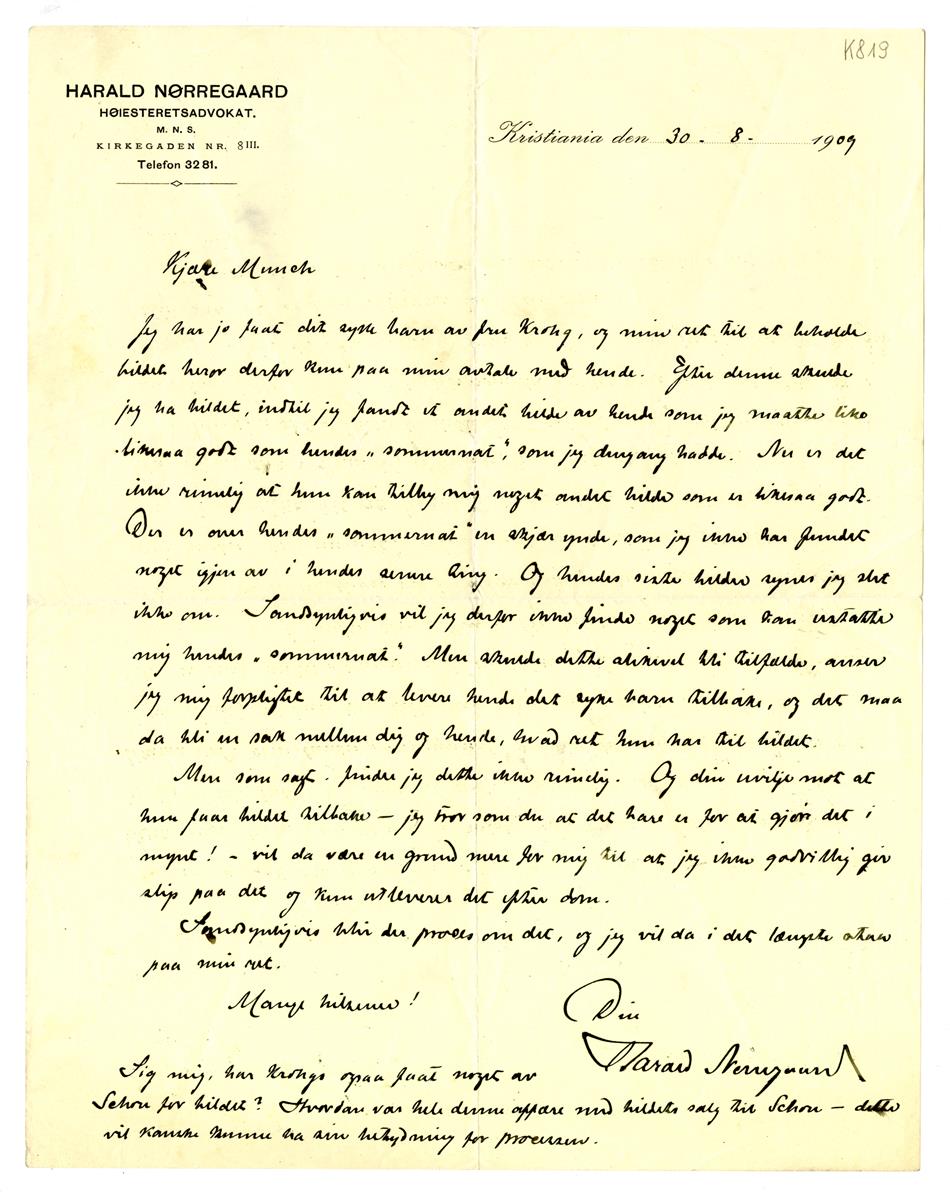 K819
HARALD NØRREGAARD
HØIESTERETSADVOKAT.
M. N. S.
KIRKEGADEN NR. 8 III.
Telefon 3281.
Kristiania den 30 - 8 - 1909
Kjære Munch
Jeg har jo faat dit syke barn av fru Krohg, og min ret til at beholde
billedet beror derfor kun paa min avtale med hende. Efter denne skulde
jeg ha bildet, indtil jeg fandt et andet bilde av hende som jeg maatte like
likesaa godt som hendes „sommernat“, som jeg dengang hadde. Nu er det
ikke rimelig at hun kan tilby mig noget andet bilde som er likesaa godt.
Der er over hendes „sommernat“ en skjær ynde, som jeg ikke har fundet
noget igjen av i hendes senere ting. Og hendes siste bilder synes jeg slet
ikke om. Sandsynligvis vil jeg derfor ikke finde noget som kan erstatte
mig hendes „sommernat“. Men skulde dette alikevel bli tilfælde, anser
jeg mig forpligtet til at levere hende det syke barn tilbake, og det maa
da bli en sak mellem dig og hende, hvad ret hun har til bildet.
Men som sagt - finder jeg dette ikke rimelig. Og din uvilje mot at
hun faar bildet tilbake — jeg tror som du at det bare er for at gjøre det i
mynt! - vil da være en grund mere for mig til at jeg ikke godvillig gir
slip paa det og kun utleverer det efter dom.
Sandsynligvis blir der proces om det, og jeg vil da i det længste staa
paa min ret.
Mange hilsener!
Din
Harald Nørregaard
Sig mig, har Krohgs ogsaa faat noget av
Schou for bildet? Hvordan var hele denne affære med bildets salg til Schou — dette
vil kanske kunne ha sin betydning for processen.